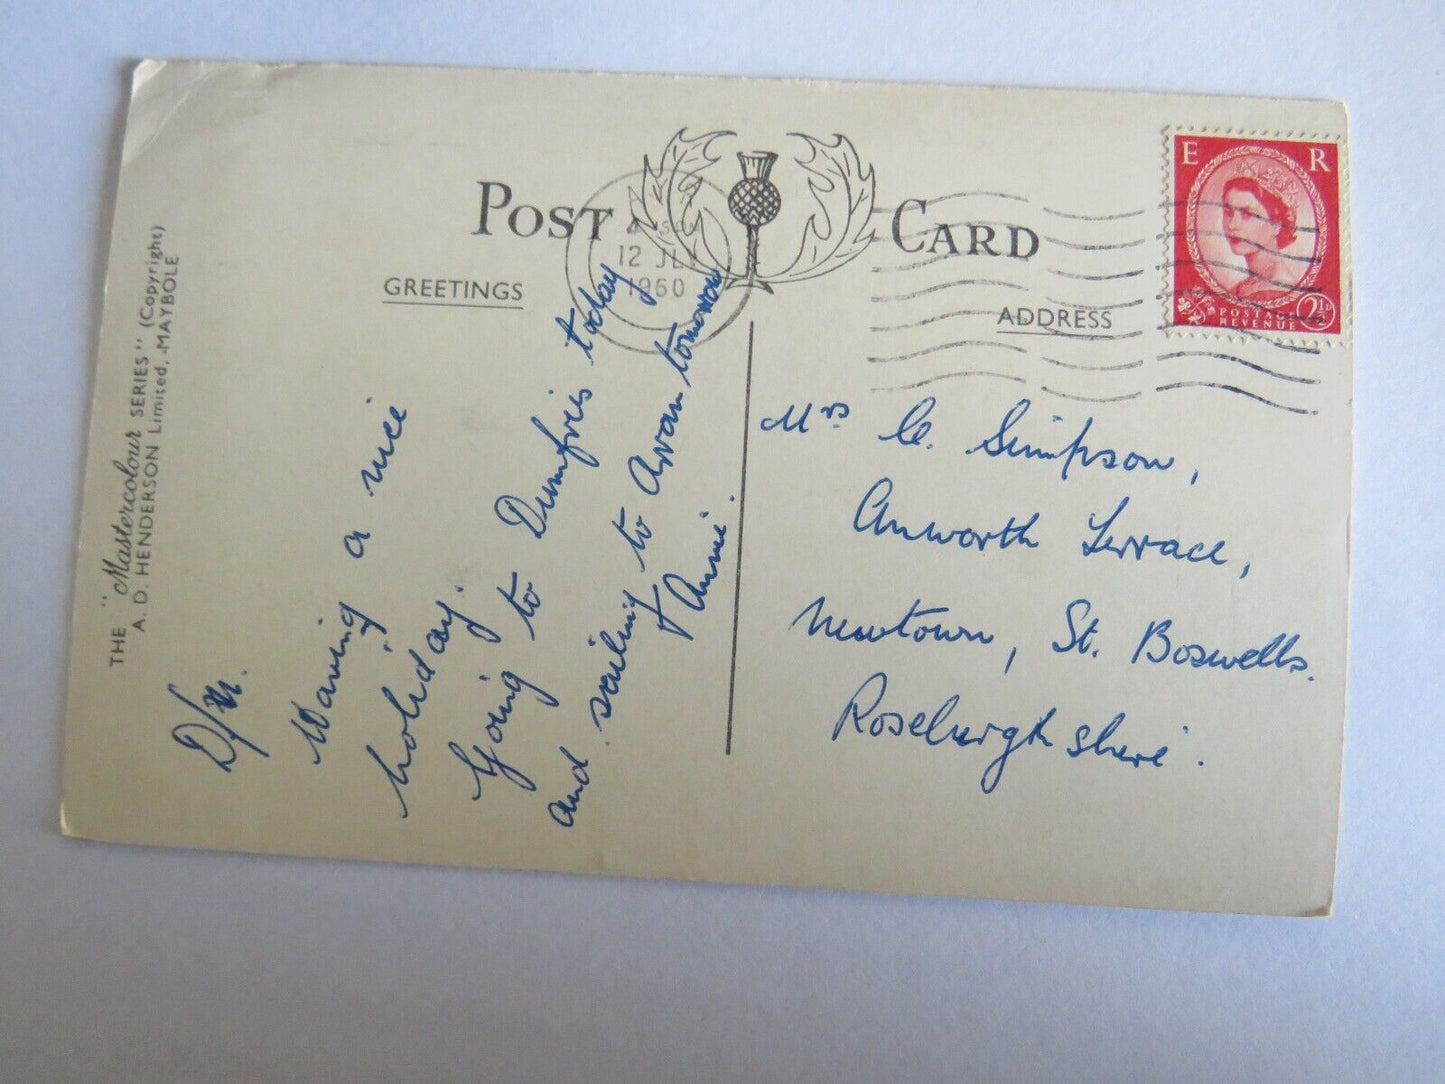 THE "Mastercolour SERIES" (Copyright)
A. D. HENDERSON Limited, MAYBOLE
POST CARD
GREETINGS
ADDRESS
12 JLY
1960
E R
POSTAGE
REVENUE
2½
D/M.
Having a nice
holiday.
Going to Dumfries today
and sailing to Arran tomorrow
Annie.
Mrs C. Simpson,
Anworth Terrace,
Newtown, St. Boswells.
Roseburghshire.